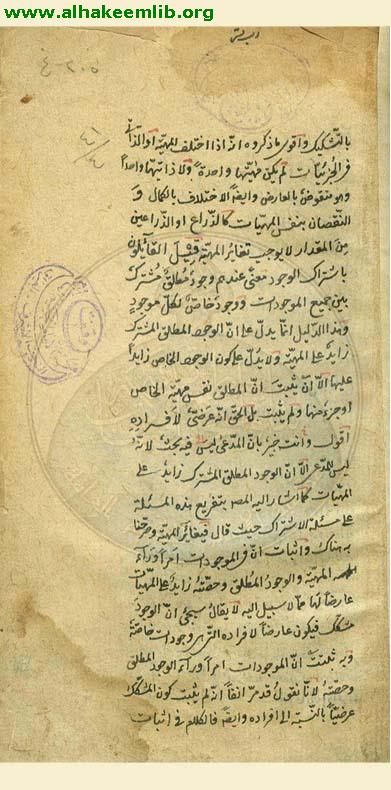 www.alhakeemlib.org
بالتشكيك وأقوى ما ذكروه انه اذا اختلف المهية او الذاتى
فى الجزئيات لم يكن مهيتها واحدة ولا ذاتيها واحدا
وهو منقوض بالعارض وايضا الاختلاف بالكمال و
النقصان بنفس المهيات كالذراع او الذراعين
من المقدار لا يوجب تغاير المهية قيل القائلون
باشتراك الوجود معنى عندهم وجود مطلق مشترك
بين جميع الموجودات ووجود خاص لكل موجود
وهذا الدليل انما يدل على ان الوجود المطلق المشترك
زايد على المهية ولا يدل على كون الوجود الخاص زايدا
عليها الا ان يثبت ان المطلق نفس مهية الخاص
او جزء منها ولم يثبت بل الحق انه عرضى لافراده
اقول وانت خبير بان المدعى ليس فيه بحث لانه
ليس المدعى الا ان الوجود المطلق المشترك زايد على
المهيات كما اشار اليه المصـ بتفريع هذه المسئلة
على مسئلة الاشتراك حيث قال فيغاير المهية وصرحنا
به هناك واثبات ان فى الموجودات امرا وراء
المهية والوجود المطلق وحصته زايد على المهيات
عارضا لها مما لا سبيل اليه لا يقال سيجئ ان الوجود
مشكك فيكون عارضا لافراده التى هى وجودات خاصة
وبه يثبت ان الموجودات امرا وراء الوجود المطلق
وحصته لانا نقول قد مر انفا انه لم يثبت كون المشكك
عرضيا بالنسبة الى افراده وايضا فالكلام فى اثبات